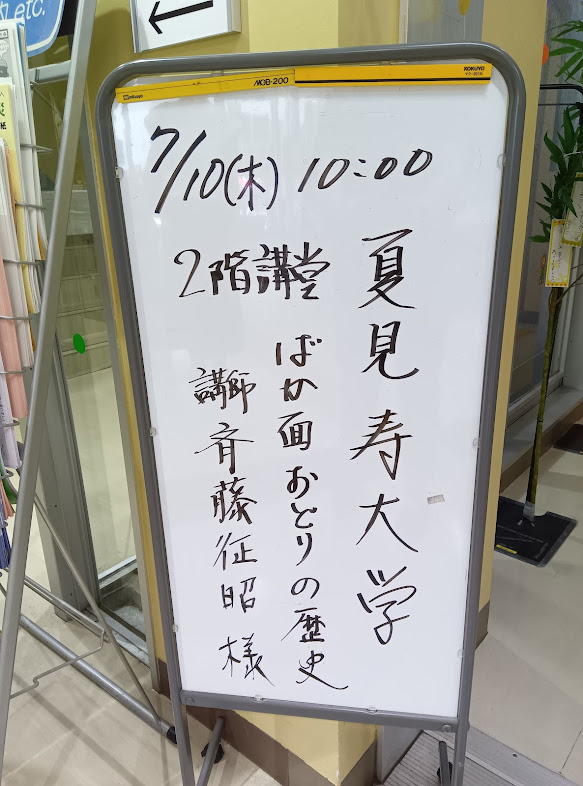 etc.
MGB-200
KOKUYO
7/10(木) 10:00
2階講堂
夏見寿大学
ばか面おどりの歴史
講師 斉藤征昭様